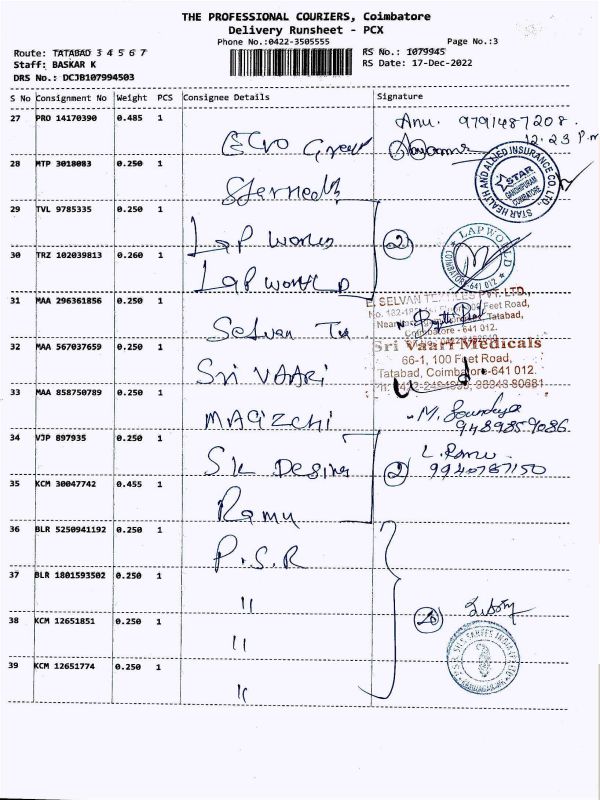 THE PROFESSIONAL COURIERS, Coimbatore
Delivery Runsheet - PCX
Phone No.:0422-3505555
Page No.:3
Route: TATABAD 3 4 5 6 7
RS No.: 1079945
Staff: BASKAR K
RS Date: 17-Dec-2022
DRS No.: DCJB107994503
S No Consignment No Weight PCS Consignee Details Signature
27 PRO 14170390 0.485 1
Anu. 9791487208.
12.23 P.m
28 MTP 3018083 0.250 1
STAR HEALTH AND ALLIED INSURANCE CO. LTD.
STAR
GANDHIPURAM
COIMBATORE
29 TVL 9785335 0.250 1
Lap World
2
LAP WORLD
COIMBATORE
641 012
30 TRZ 102039813 0.260 1
Lap World
31 MAA 296361856 0.250 1
Selvan Tex
E. SELVAN TEXTILES PVT. LTD.,
Feet Road,
Tatabad,
Coimbatore - 641 012.
32 MAA 567037659 0.250 1
Sri VAARi
Sri Vaari Medicals
66-1, 100 Feet Road,
Tatabad, Coimbatore-641 012.
33 MAA 858750789 0.250 1
MAGIZCHI
M. Soundarya
9489859086
34 VJP 897935 0.250 1
SK Design
2
L. Ramu
9940787150
35 KCM 30047742 0.455 1
Ramu
36 BLR 5250941192 0.250 1
P.S.R
37 BLR 1801593502 0.250 1
"
38 KCM 12651851 0.250 1
"
39 KCM 12651774 0.250 1
"